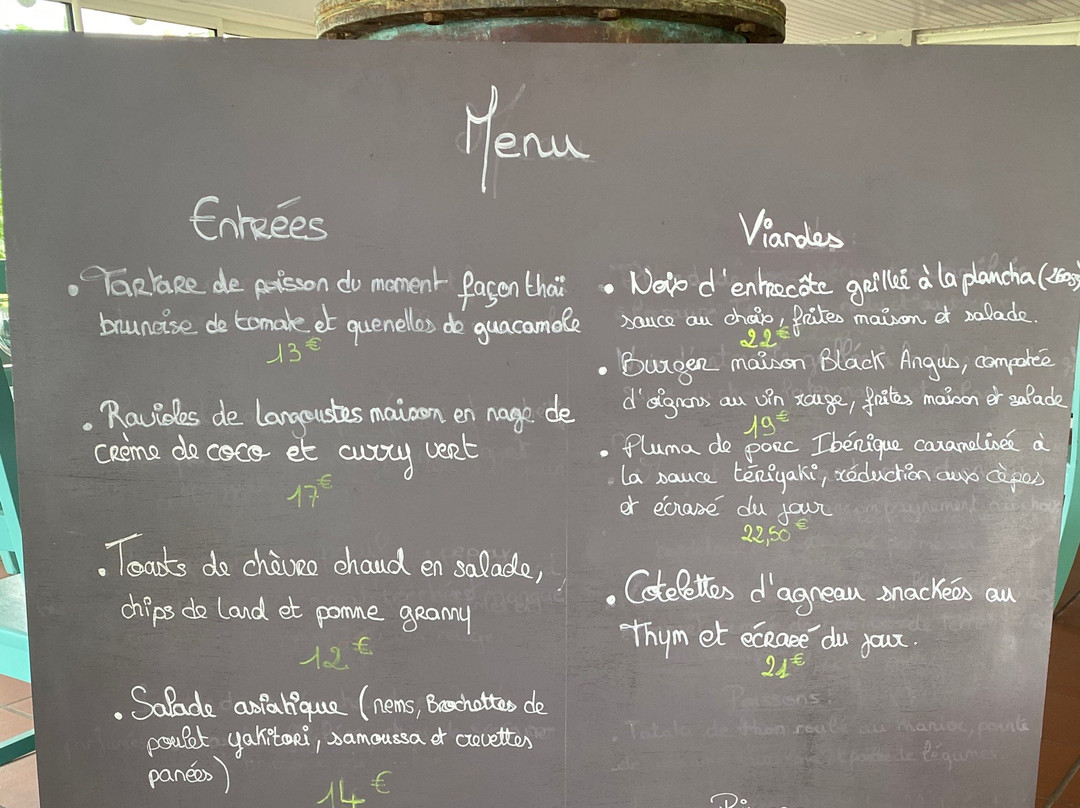 Menu
Entrées
• Tartare de poisson du moment façon thaï
brunoise de tomate et quenelles de guacamole
13€
• Ravioles de Langoustes maison en nage de
crème de coco et curry vert
17€
• Toasts de chèvre chaud en salade,
chips de Lard et pomme granny
12€
• Salade asiatique (nems, Brochettes de
poulet yakitori, samoussa et crevettes
panées)
14€
Viandes
• Noix d'entrecôte grillée à la plancha (260g)
sauce au choix, frites maison et salade.
22€
• Burger maison Black Angus, compotée
d'oignons au vin rouge, frites maison et salade
19€
• Pluma de porc Ibérique caramelisée à
la sauce tériyaki, réduction aux cèpes
et écrasé du jour
22,50€
• Cotelettes d'agneau snackées au
Thym et écrasé du jour.
21€
Poissons.
• Tataki de thon roulé au manioc, pointe
de légumes.